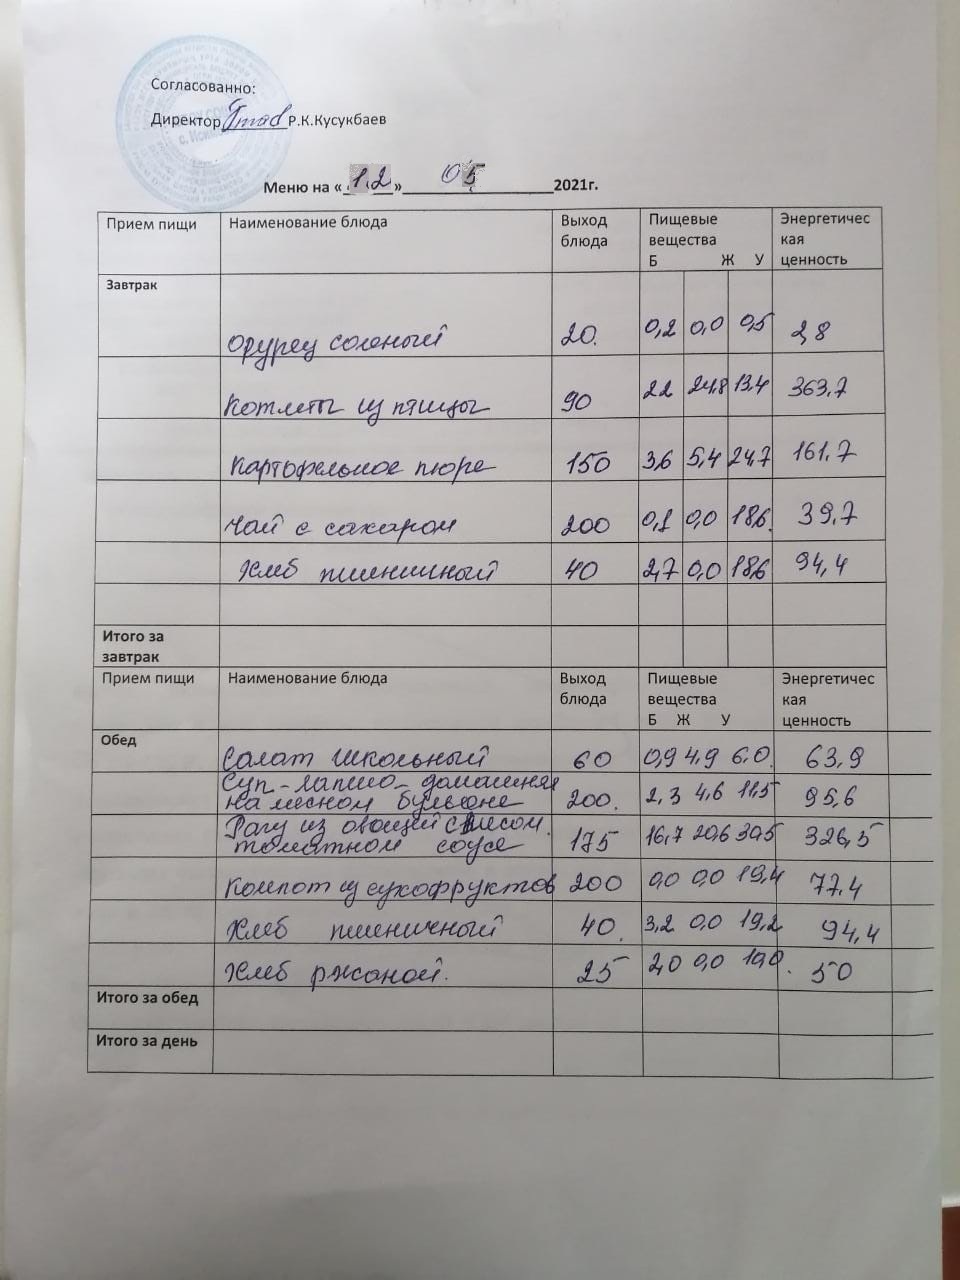 Согласованно:
Директор Р.К.Кусукбаев
Меню на «12» 05 2021г.
Прием пищи Наименование блюда Выход блюда Пищевые вещества Б Ж У Энергетичес кая ценность
Завтрак
Огурец соленый 20. 0,2 0,0 0,5 2,8
Котлеты из птицы 90 22 24,8 13.4 363,7
Картофельное пюре 150 3,6 5,4 24,7 161,7
Чай с сахаром 200 0,1 0,0 18,6. 39,7
Хлеб пшеничный 40 2,7 0,0 18,6 94,4
Итого за завтрак
Прием пищи Наименование блюда Выход блюда Пищевые вещества Б Ж У Энергетичес кая ценность
Обед
Салат школьный 60 0,9 4,9 6,0. 63,9
Суп-лапша-домашняя
на мясном бульоне 200. 2,3 4,6 11,5 95,6
Рагу из овощей с мясом.
томатном соусе 175 16,7 20,6 30,5 326,5
Компот из сухофруктов 200 0,0 0,0 19,4 77.4
Хлеб пшеничный 40. 3,2 0,0 19,2 94,4
Хлеб ржаной. 25 2,0 0,0 10,0. 50
Итого за обед
Итого за день